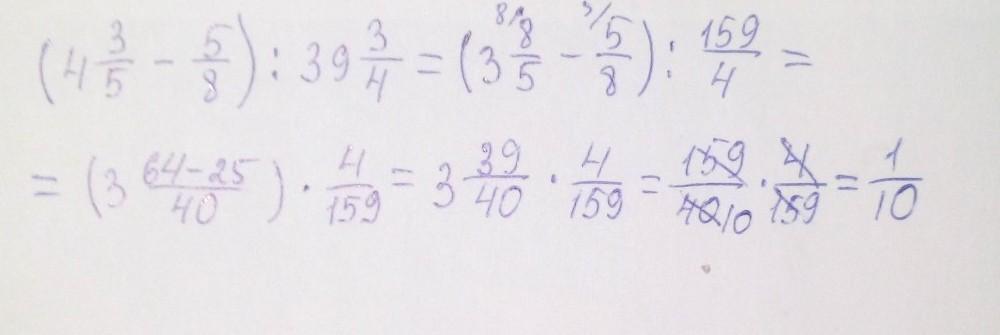 (4 3/5 - 5/8) : 39 3/4 = (3 8/5 - 5/8) : 159/4 =
= (3 64-25/40) · 4/159 = 3 39/40 · 4/159 = 159/40 10 · 4/159 = 1/10